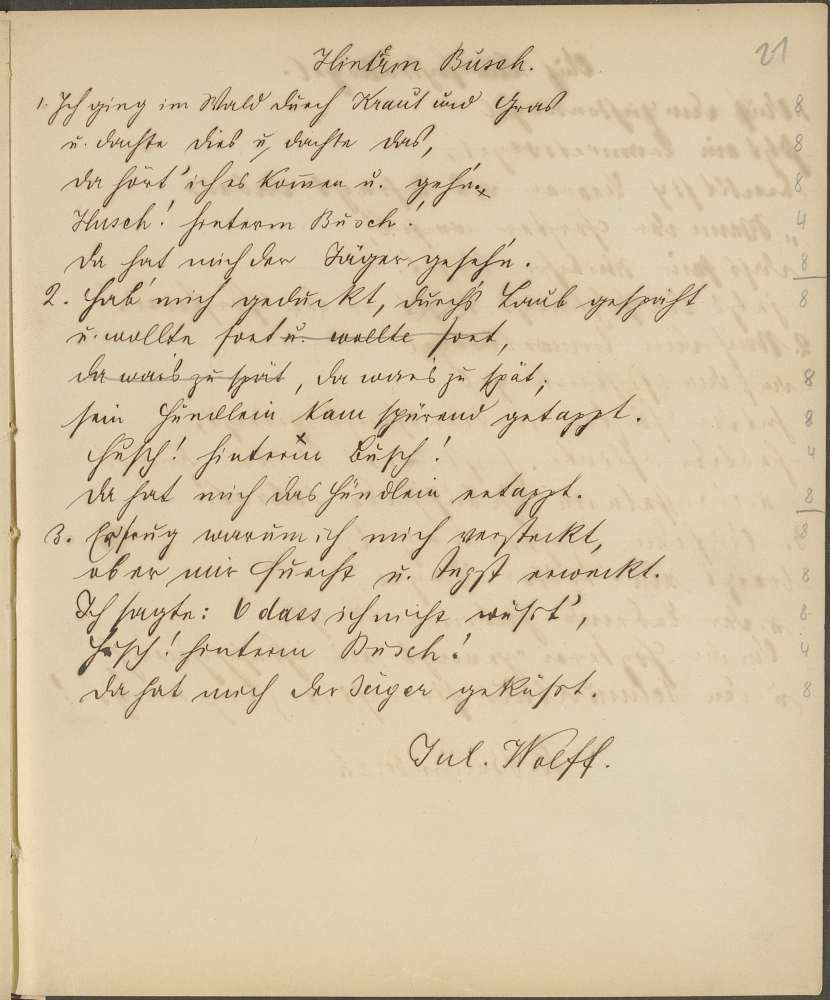 Hinterm Busch.
21
1. Ich ging im Wald durch Kraut und Gras
8
u. dachte dies u. dachte das,
8
da hört' ich es kom̄en u. geh'n
8
Husch! hinterm Busch!
4
da hat mich der Jäger geseh'n.
8
2. Hab' mich geduckt, durch's Laub gespäht
8
u. wollte fort u. wollte fort,
da wars zu spät, da wars zu spät;
8
sein Hündlein kam spürend getappt.
8
Husch! hinterm Busch!
4
da hat mich das Hündlein ertappt.
8
3. Er frug warum ich mich versteckt,
8
ob er mir Furcht u. Angst erweckt.
8
Ich sagte: O dass ich nicht wüsst',
8
Husch! hinterm Busch!
4
da hat mich der Jäger geküsst.
8
Jul. Wolff.